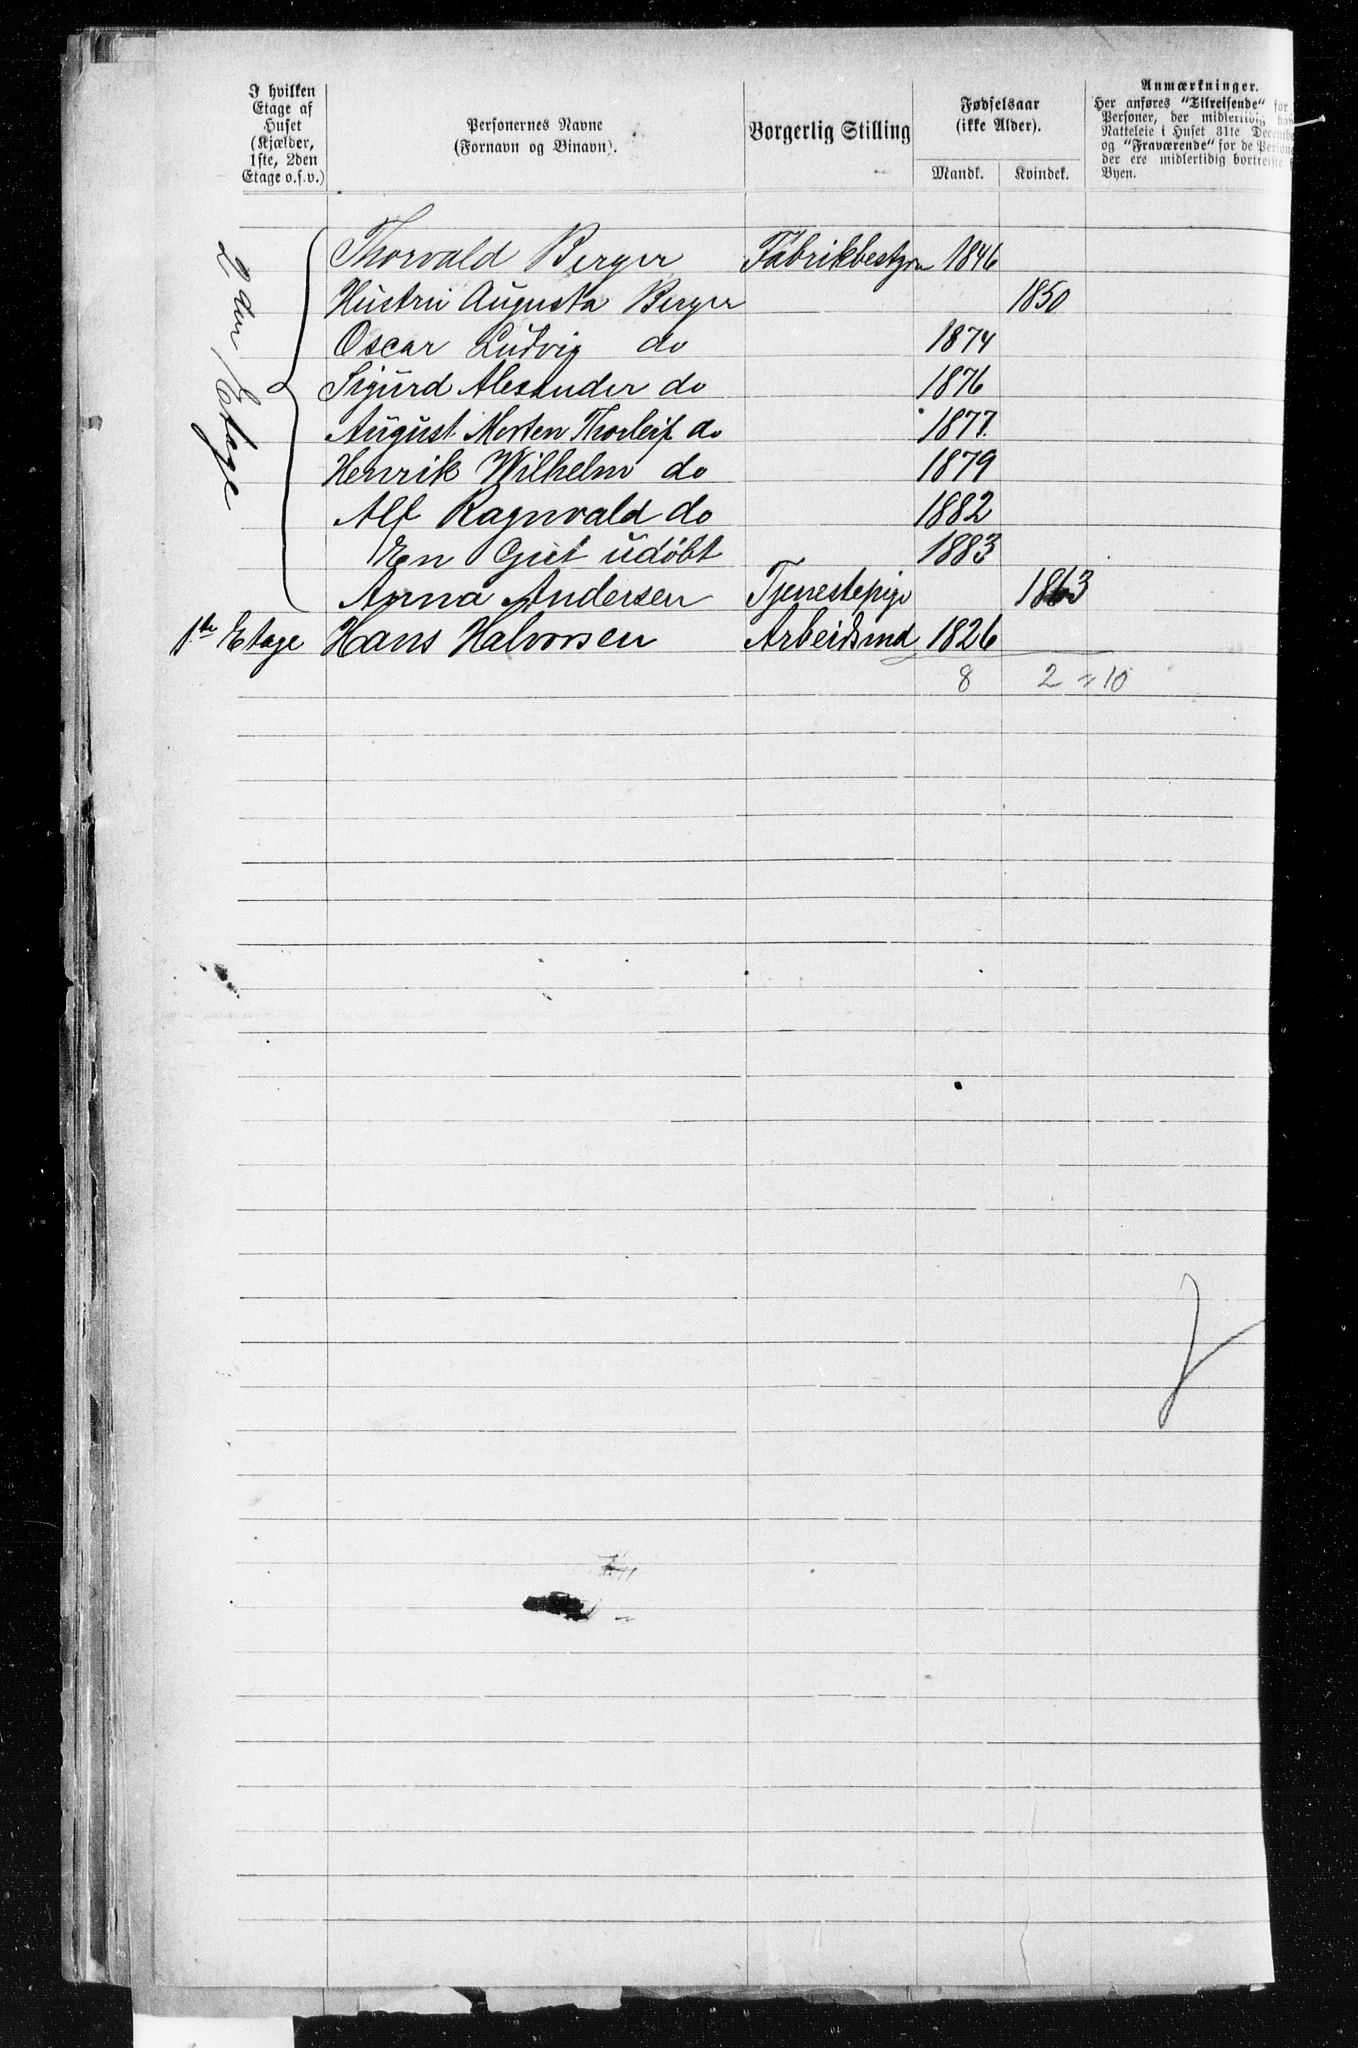 I hvilken Etage af Huset (Kjælder, 1ste, 2den Etage o.s.v.)
Personernes Navne (Fornavn og Binavn).
Borgerlig Stilling
Fødselsaar (ikke Alder).
Mandk. Kvindek.
Anmærkninger.
Her anføres "Tilreisende" for
Personer, der midlertidig
Natteleie i Huset 31te
og "Fraværende" for de
der ere midlertidig bortreiste
Byen.
2den Etage
Thorvald Berger Fabrikbestyrer 1846
Hustru Augusta Berger 1850
Oscar Ludvig do 1874
Sigurd Alexander do 1876
August Morten Thorleif do 1877.
Henrik Wilhelm do 1879
Alf Ragnvald do 1882
En Gut udøbt 1883
Anna Andersen Tjenestepige 1863
1ste Etage Hans Halvorsen Arbeidsmd 1826
8 2 = 10